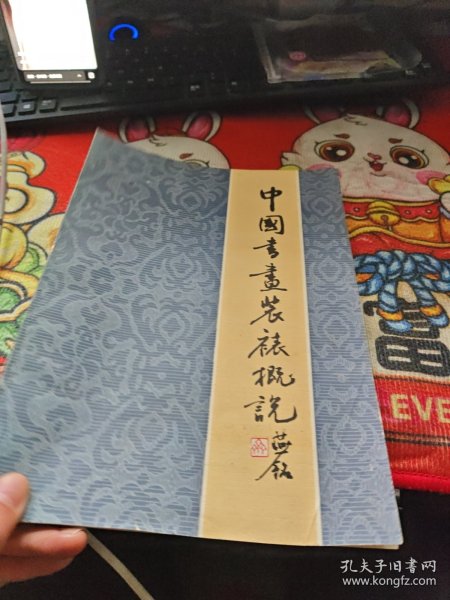 中國書畫裝裱概説
燕銘
EVE
孔夫子旧书网
www.kongfz.com